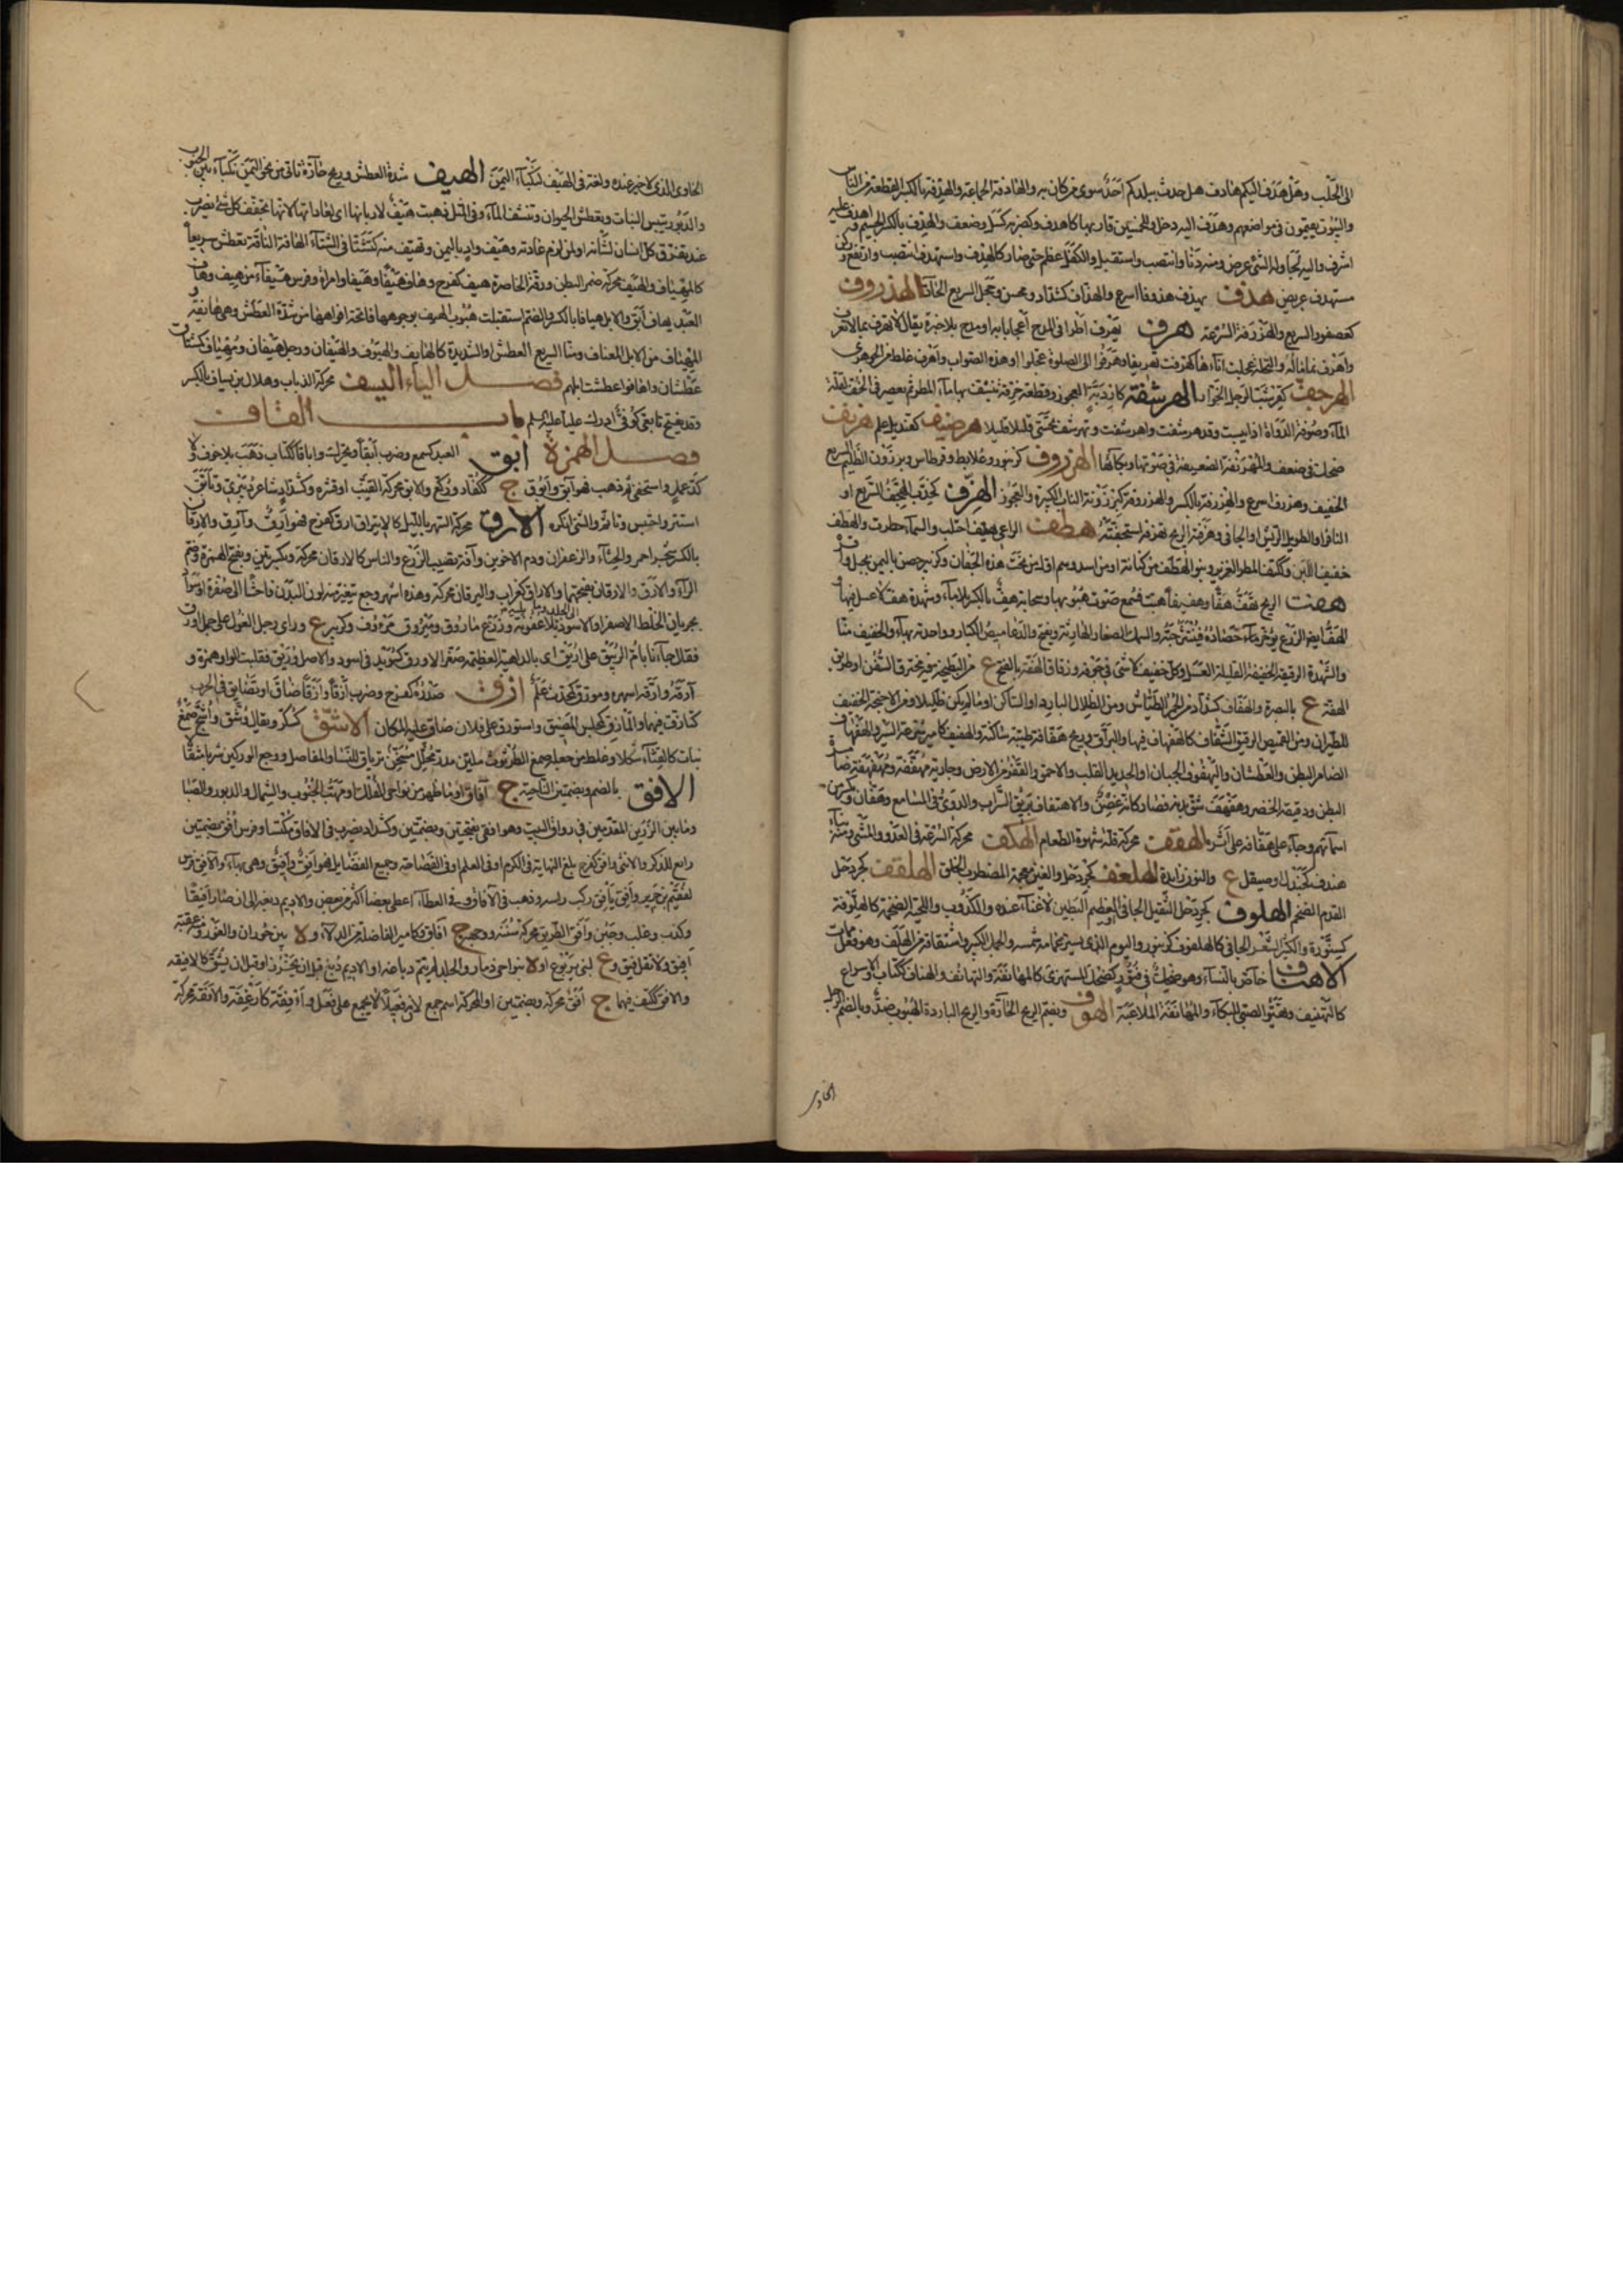 الى الحلب وهل هدف اليكم هادف هل حدث ببلدكم احد سوى من كان به والهادفة الجماعة والهدفة بالكسر القطعة من الناس
والبيوت يقيمون في مواضعهم وهدف اليه دخل وللخمسين قاربها كاهدف وكضرب كسل وضعف والهدف بالكسر الجسيم واهدف عليه
اشرف واليه لجا وله الشئ عرض ومنه دنا وانتصب واستقبل والكفل عظم حتى صار كالهدف واستهدف انتصب وارتفع وركن
مستهدف عريض هذف يهذف هذوفا اسرع والهذاف كشداد ومحسن وعجل السريع الحاد الهذروف
كعصفور السريع والهذرفة السرعة هرف يهرف اطرا في المدح اعجابا به او مدح بلا خبرة يقال لا تهرف بما لا تعرف
واهرف نما ماله والنخلة عجلت اتاءها كهرفت تهريفا وهرفوا الى الصلوة عجلوا او هذه الصواب واهرف غلط من الجوهري
الهرجف الرجل الخوار الهرشفة كاردبة العجوز وقطعة خرقة ينشف بها ماء المطر ثم يعصر في الجف لقلة
الماء وصوفة الدواة اذا يبست وقد هرشفت واهرشفت وتهرشف تحسى قليلا قليلا هرصيف كقنديل علم هرنف
ضحك في ضعف والمهرنفة الضعيفة في صوتها وبكائها الهزروف كزنبور وعلابط وقرطاس وبرذون الظليم السريع
الخفيف وهزرف اسرع والهزرفة بالكسر والهزروفة كبرذونة الناب الكبيرة والعجوز الهزف كخدب الهجف السريع او
النافر او الطويل الريش او الجافي وهزفته الريح تهزفه استخفته هطف الراعي يهطف احتلب والسماء مطرت والهطف
حفيف اللبن وككتف المطر الغزير وبنو الهطف من كنانة او من اسد وهم اول من نحت هذه الجفان وكزبير حصن باليمن بجبل
هفت الريح تهف هفا وهفيفا هبت فسمع صوت هبوبها وسحابة هف بالكسر بلا ماء وشهدة هف لا عسل فيها
والشهدة الرقيقة الخفيفة القليلة العسل وكل خفيف لا شئ في جوفه وزقاق الهفة بالفتح ع من البطيحة
الهفة ع بالبصرة والهفاف كشداد من الحمر الطياش ومن الظلال البارد او الساكن او ما لم يكن ظليلا ومن الاجنحة الخفيف
للطيران ومن القميص الرقيق الشفاف كالهفهاف فيهما والبراق وريح هفافة طيبة ساكنة والهفيف كامير سرعة السير والهفهاف
الضامر البطن والعطشان واليهفوف الجبان او الحديد القلب والاحمق والقفر من الارض وجارية مهففة ومهفهفة ضامرة
البطن ودقيقة الخصر وهفهف مشق بدنه فصار كانه غصن والاهتفاف بريق السراب والدوي في المسامع وهفان وكزبير من
اسمائهم وجاء على هفانه على اثره الهقف محركة قلة شهوة الطعام الهكف محركة السرعة في العدو والمشي ومنه بناء
هندف كجندل او صيقل ع والنون زائدة الهلغف كجردحل والغين معجمة المضطرب الخلق الهلقف كجردحل
الفدم الضخم الهلوف كجردحل الثقيل الجافي العظيم البطين لا غناء عنده والكذوب واللحية الضخمة كالهلوفة
كسنورة والكثير الشعر الجافي كالهلفوف كزنبور واليوم الذي يستر غمامه شمسه والجمل الكبير واشتقاقه من الهلف وهو فعل ممات
الاهناف خاص بالنساء وهو ضحك في فتور كضحك المستهزئ كالمهانفة والتهانف والهناف ككتاب والاسراع
كالتهنيف وتهيؤ الصبي للبكاء والمهانفة الملاعبة الهوف ويضم الريح الحارة والريح الباردة الهبوب ضد وبالضم الرجل
الخاوي
الخاوي الذي لا خير عنده ولغة في الهيف لنكباء اليمن الهيف شدة العطش وريح حارة تاتي من نحو اليمن نكباء بين الجنوب
والدبور تيبس النبات وتعطش الحيوان وتنشف الماء وفي المثل ذهبت هيف لاديانها اي لعاداتها لانها تجفف كل شئ يضرب
عند تفرق كل انسان لشانه او لمن لزم عادته وهيف واد باليمن وتهيف منه كتشتا في الشتاء الهافة الناقة تعطش سريعا
كالمهياف والهيف محركة ضمر البطن ورقة الخاصرة هيف كفرح وهاف هيفا وهيفا وامراة وفرس هيفاء من هيف وهاف
العبد يهاف ابق والابل هيافا بالكسر والضم استقبلت هبوب الهيف بوجوهها فاتحة افواهها من شدة العطش وهي هائفة
المهياف من الابل المعناف ومنا السريع العطش او الشديدة كالهائف والهيوف والهيفان ورجل هيفان ومهياف كمشتاق
عطشان واهافوا عطشت ابلهم فصل الياء اليسف محركة الذباب وهلال بن يساف بالكسر
وقد يفتح تابعي كوفي ادرك عليا عليه السلم باب القاف
فصل الهمزة ابق العبد كسمع وضرب ابقا ويحرك واباقا ككتاب ذهب بلا خوف ولا
كد عمل او استخفى ثم ذهب فهو آبق وابوق ج ككفار وركع والابق محركة القنب او قشره وكشداد شاعر دبيري وتابق
استتر واحتبس وتاثم والشئ انكره الارق محركة السهر بالليل كالايتراق ارق كفرح فهو ارق وآرق والارقان
بالكسر شجر احمر والحناء والزعفران ودم الاخوين وآفة تصيب الزرع والناس كالارقان محركة وبكسرتين وبفتح الهمزة وضم
الراء والارق والارقان بفتحهما والاراق كغراب واليرقان محركة وهذه اشهر وجع يتغير منه لون البدن فاحشا الى صفرة او سواد
بجريان الخلط الاصفر او الاسود الى الجلد وما يليه بلا عفونة وزرع ماروق وميروق مؤوف وكزبير ع وراى رجل الغول على جمل اورق
فقال جاءنا بام الربيق على اريق اي بالداهية العظيمة صغر الاورق كسويد في اسود والاصل وريق فقلبت الواو همزة و
آرقه وارقه اسهره ومؤرق كمحدث علم ازق صدره كفرح وضرب ازقا وازقا ضاق او تضايق في الحرب
كتازق فيهما والمازق كمجلس المضيق واستؤزق على فلان ضاق عليه المكان الاشق كسكر ويقال وشق واشج صمغ
نبات كالقثاء شكلا وغلط من جعله صمغ الطرثوث ملين مدر محلل مسخن ترياق للنسا والمفاصل ووجع الوركين شربا مثقالا
الافق بالضم وبضمتين الناحية ج آفاق او ما ظهر من نواحي الفلك او مهب الجنوب والشمال والدبور والصبا
وما بين الزرين المقدمين في رواق البيت وهو افقي بفتحتين وبضمتين وكشداد يضرب في الافاق مكتسبا وفرس افق بضمتين
رائع للذكر والانثى وافق كفرح بلغ النهاية في الكرم او في العلم او في الفصاحة وجميع الفضائل فهو آفق وافيق وهي بهاء والآفق فرس
لفقيم بن جرير وافق يافق ركب راسه وذهب في الآفاق وفي العطاء اعطى بعضا اكثر من بعض والاديم دبغه الى ان صار افيقا
وكذب وغلب وختن وافق الطريق محركة سننه ووجهه ج آفاق وكامير الفاضلة من الدلاء و ة بين حوران والغور ومنه عقبة
افيق ولا تقل فيق و ع لبني يربوع او ة بنواحي ذمار والجلد لم يتم دباغه او الاديم دبغ قبل ان يخرز او قبل ان يشق كالافيقة
والافق ككتف فيهما ج افق محركة وبضمتين او المحركة اسم جمع لان فعيلا لا يجمع على فعل و آفقة كارغفة والافقة محركة